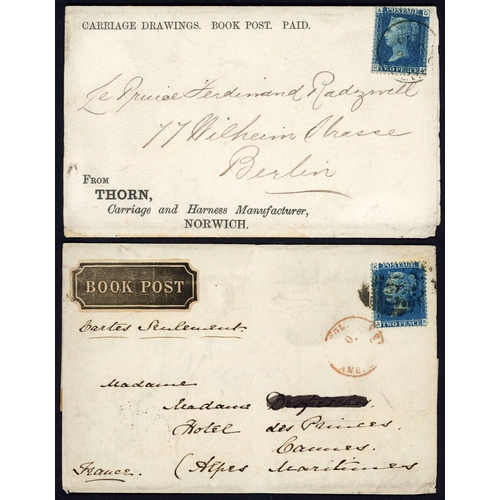 CARRIAGE DRAWINGS. BOOK POST. PAID.
POSTAGE
TWO PENCE
Le Prince Ferdinand Radziwill
77 Wilhelm Strasse
Berlin
FROM
THORN,
Carriage and Harness Manufacturer,
NORWICH.
BOOK POST
POSTAGE
TWO PENCE
Cartes Seulement
Madame
Madame
Hotel des Princes
Cannes.
France. (Alpes Maritimes